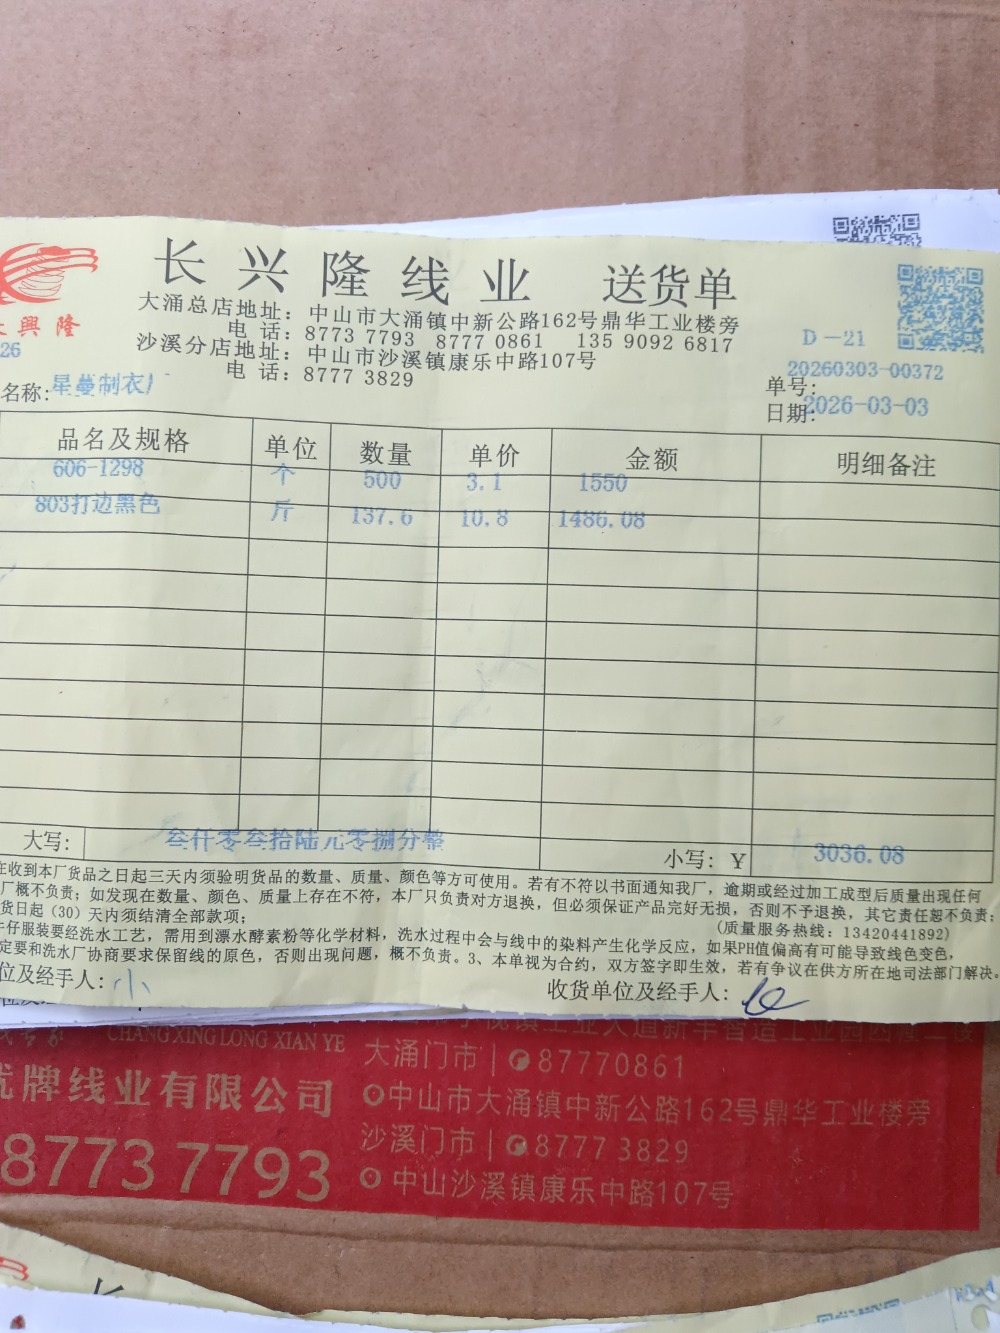 长兴隆线业 送货单
大涌总店地址：中山市大涌镇中新公路162号鼎华工业楼旁
电话：8773 7793 8777 0861 135 9092 6817
沙溪分店地址：中山市沙溪镇康乐中路107号
电话：8777 3829
興隆
26
D-21
名称：星蔓制衣厂
单号：20260303-00372
日期：2026-03-03
品名及规格 单位 数量 单价 金额 明细备注
606-1298 个 500 3.1 1550
803打边黑色 斤 137.6 10.8 1486.08
大写：叁仟零叁拾陆元零捌分整 小写：Y 3036.08
在收到本厂货品之日起三天内须验明货品的数量、质量、颜色等方可使用。若有不符以书面通知我厂，逾期或经过加工成型后质量出现任何
厂概不负责；如发现在数量、颜色、质量上存在不符，本厂只负责对方退换，但必须保证产品完好无损，否则不予退换，其它责任恕不负责；
货日起（30）天内须结清全部款项；
（质量服务热线：13420441892）
仔服装要经洗水工艺，需用到漂水酵素粉等化学材料，洗水过程中会与线中的染料产生化学反应，如果PH值偏高有可能导致线色变色，
定要和洗水厂协商要求保留线的原色，否则出现问题，概不负责。3、本单视为合约，双方签字即生效，若有争议在供方所在地司法部门解决。
位及经手人：小
收货单位及经手人：
CHANG XING LONG XIAN YE
优牌线业有限公司
8773 7793
大涌门市 | 87770861
中山市大涌镇中新公路162号鼎华工业楼旁
沙溪门市 | 8777 3829
中山沙溪镇康乐中路107号